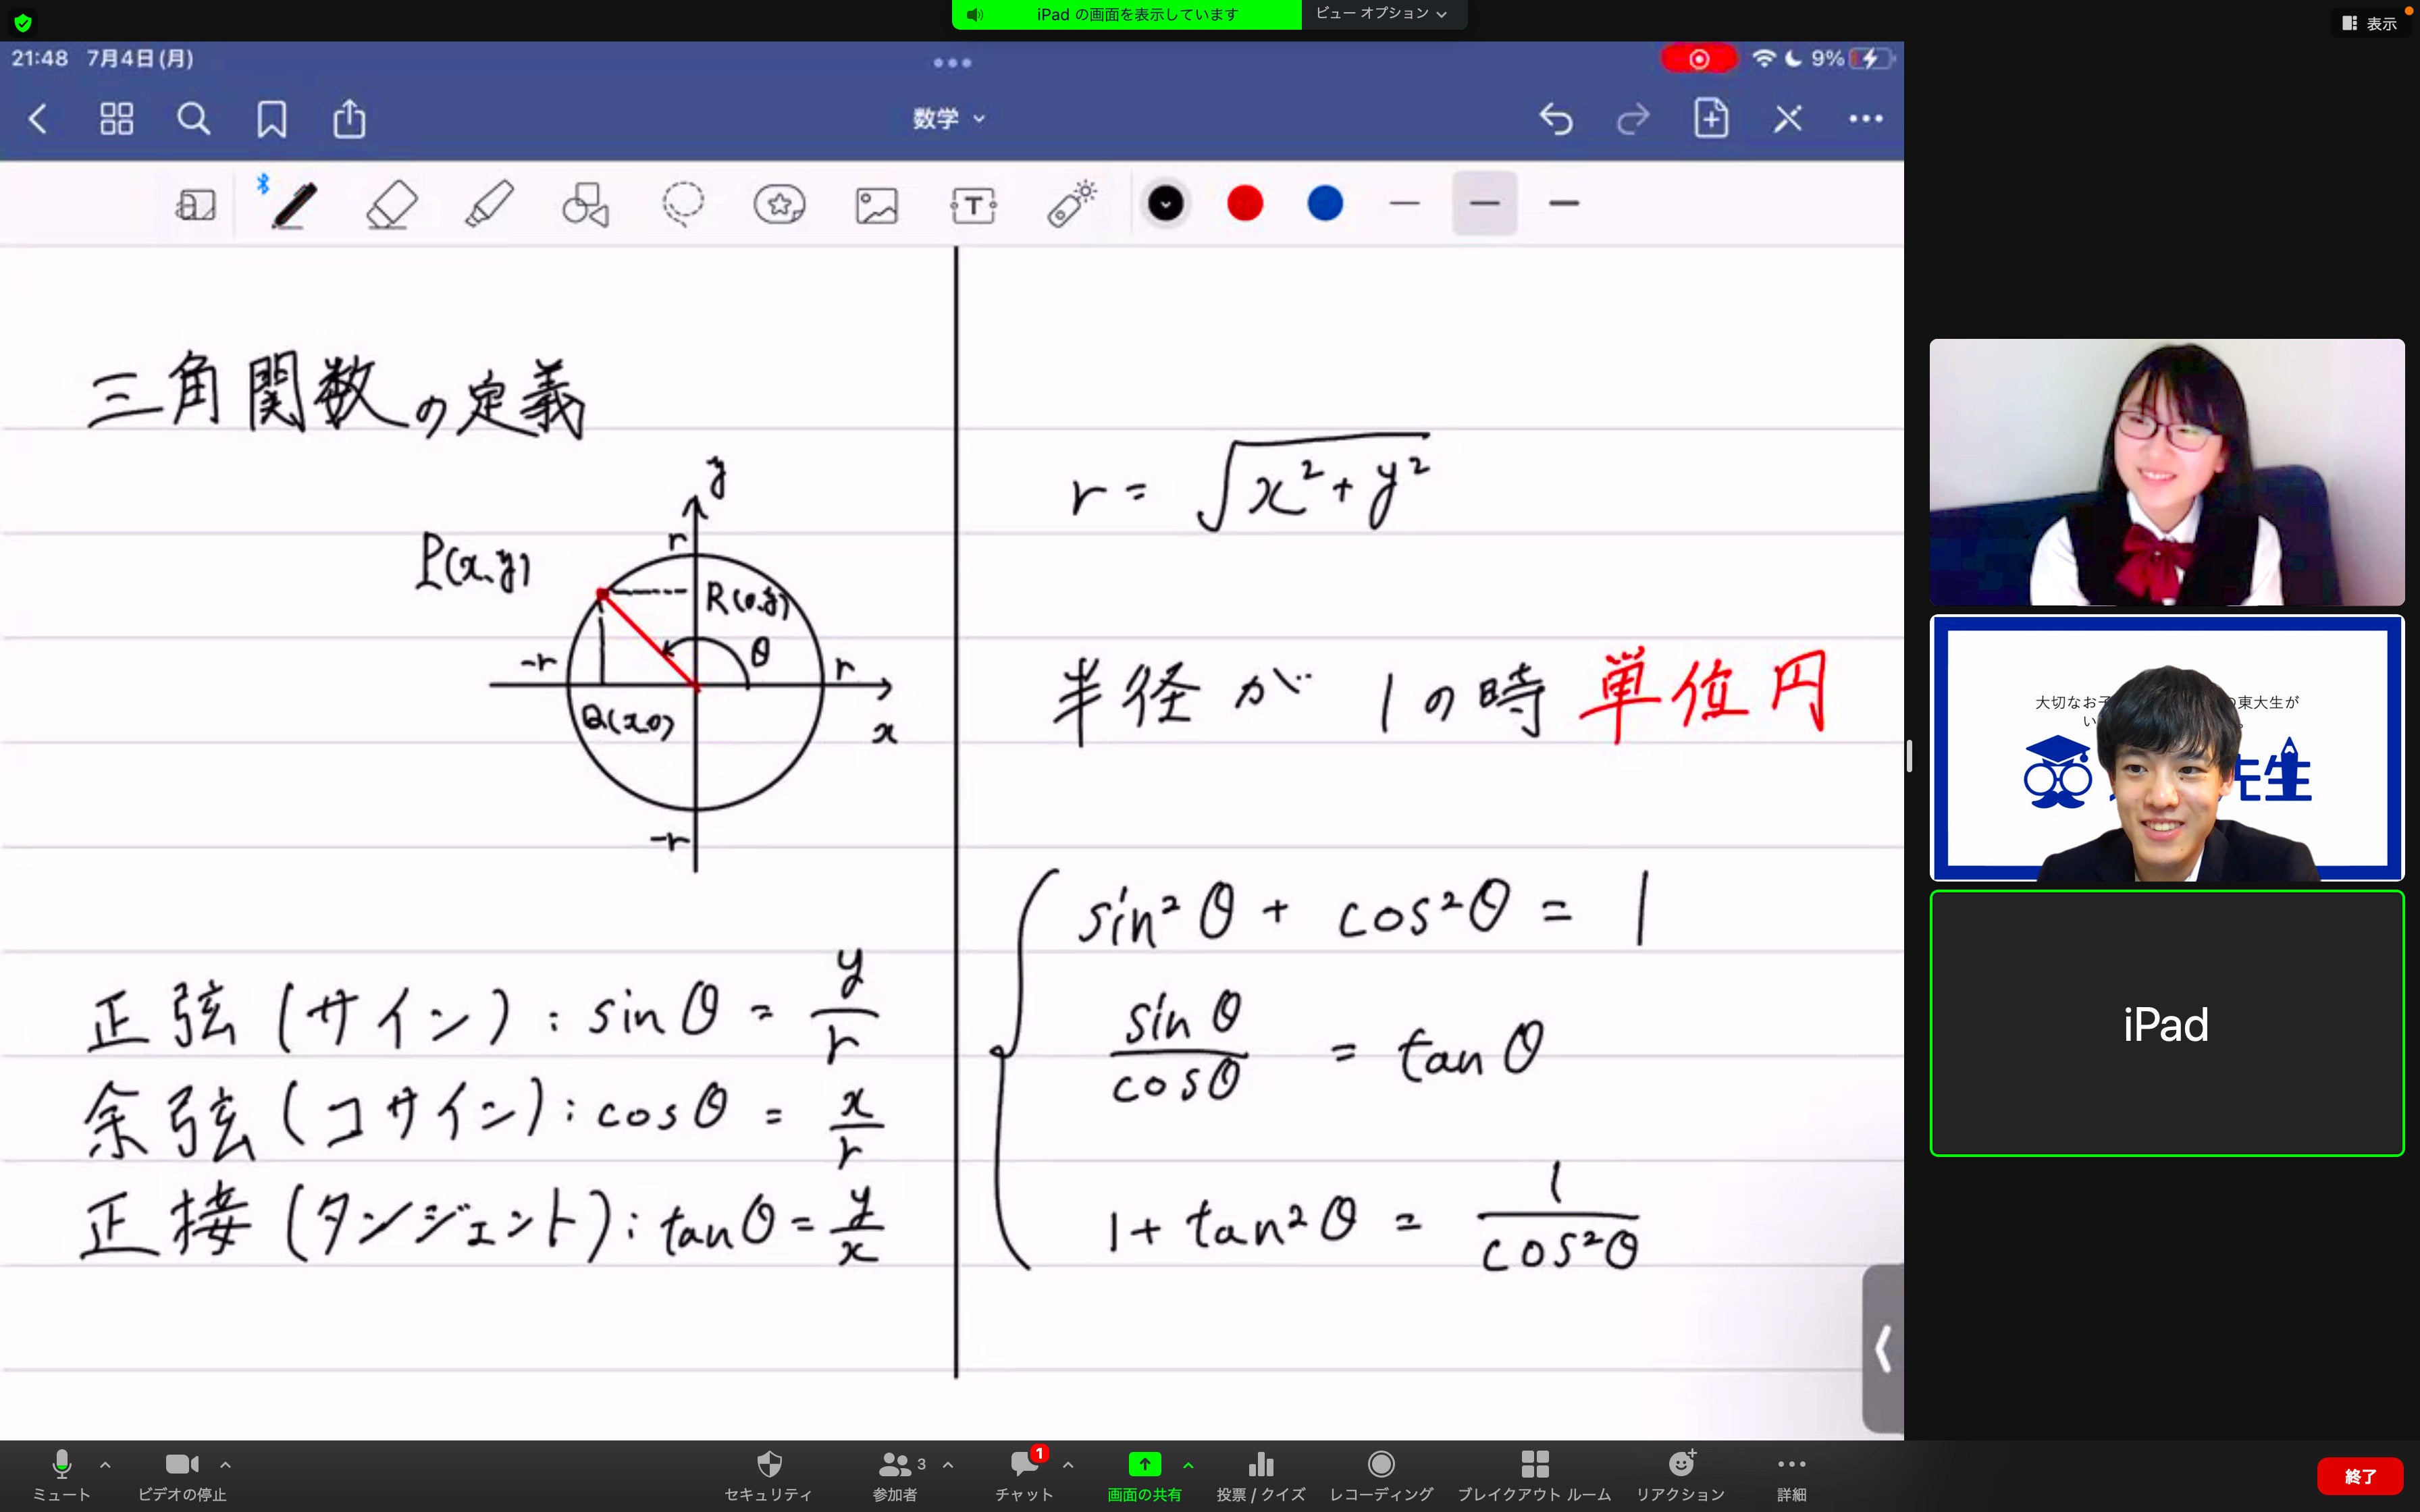 iPad の画面を表示しています
ビュー オプション
表示
21:48 7月4日(月)
9%
数学
三角関数の定義
y
r
P(x,y)
R(0,y)
θ
-r
r
Q(x,0)
x
-r
正弦(サイン):sinθ = y/r
余弦(コサイン):cosθ = x/r
正接(タンジェント):tanθ = y/x
r = √x²+y²
半径が 1の時 単位円
sin²θ + cos²θ = 1
sinθ/cosθ = tanθ
1+ tan²θ = 1/cos²θ
大切なお子 の東大生が
い
先生
iPad
ミュート
ビデオの停止
セキュリティ
参加者
3
チャット
1
画面の共有
投票 / クイズ
レコーディング
ブレイクアウト ルーム
リアクション
詳細
終了